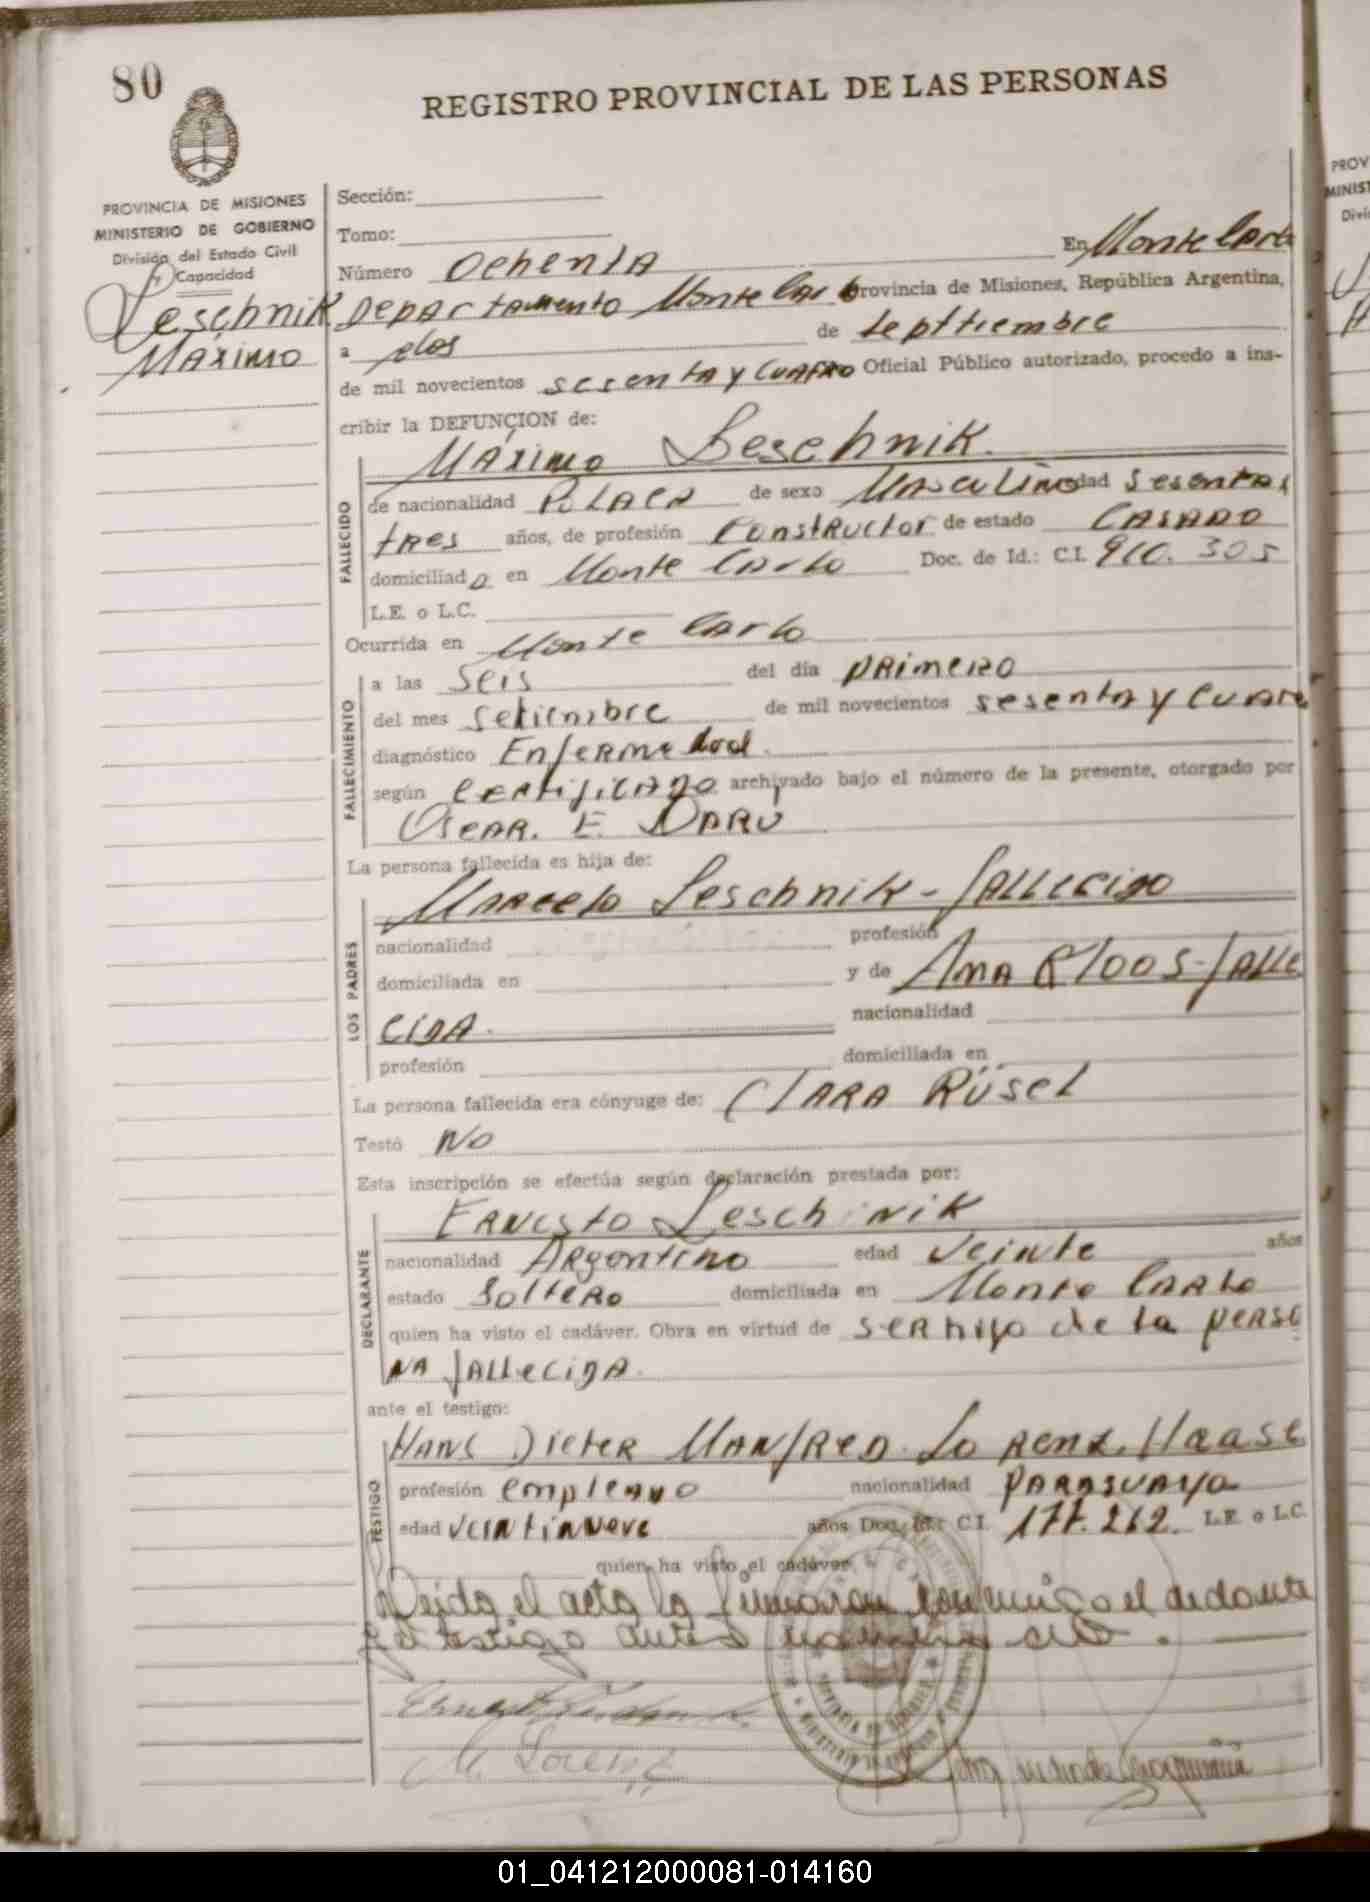 80
REGISTRO PROVINCIAL DE LAS PERSONAS
PROVINCIA DE MISIONES
MINISTERIO DE GOBIERNO
División del Estado Civil
y Capacidad
Leschnik
Máximo
Sección:
Tomo:
Número Ochenta En Monte Carlo
Departamento Monte Carlo Provincia de Misiones, República Argentina,
a dos de Septtiembre
de mil novecientos sesenta y cuatro Oficial Público autorizado, procedo a ins-
cribir la DEFUNCION de:
Máximo Leschnik.
FALLECIDO
de nacionalidad Polaca de sexo Masculino edad sesenta y
tres años, de profesión Constructor de estado Casado
domiciliado en Monte Carlo Doc. de Id.: C.I. 910.305
L.E. o L.C.
Ocurrida en Monte Carlo
FALLECIMIENTO
a las seis del día primero
del mes setiembre de mil novecientos sesenta y cuatro
diagnóstico Enfermedad.
según certificado archivado bajo el número de la presente, otorgado por
Oscar. E. Darú
La persona fallecida es hija de:
LOS PADRES
Marcelo Leschnik - fallecido
nacionalidad profesión
domiciliada en y de Ana Kloos - falle
cida. nacionalidad
profesión domiciliada en
La persona fallecida era cónyuge de: Clara Rüsel
Testó No
Esta inscripción se efectúa según declaración prestada por:
DECLARANTE
Ernesto Leschinik
nacionalidad Argentino edad veinte años
estado soltero domiciliada en Monte Carlo
quien ha visto el cadáver. Obra en virtud de ser hijo de la perso
na fallecida.
ante el testigo:
TESTIGO
Hans Dieter Manfred Lorenz. Haase
profesión empleado nacionalidad paraguaya
edad veintinueve años Doc. Id.: C.I. 177.262. L.E. o L.C.
quien ha visto el cadáver.
Leída el acta la firmaron conmigo el declarante
y el testigo antes nombrado.
M. Lorenz
PROV
MINIST
Divi
01_041212000081-014160